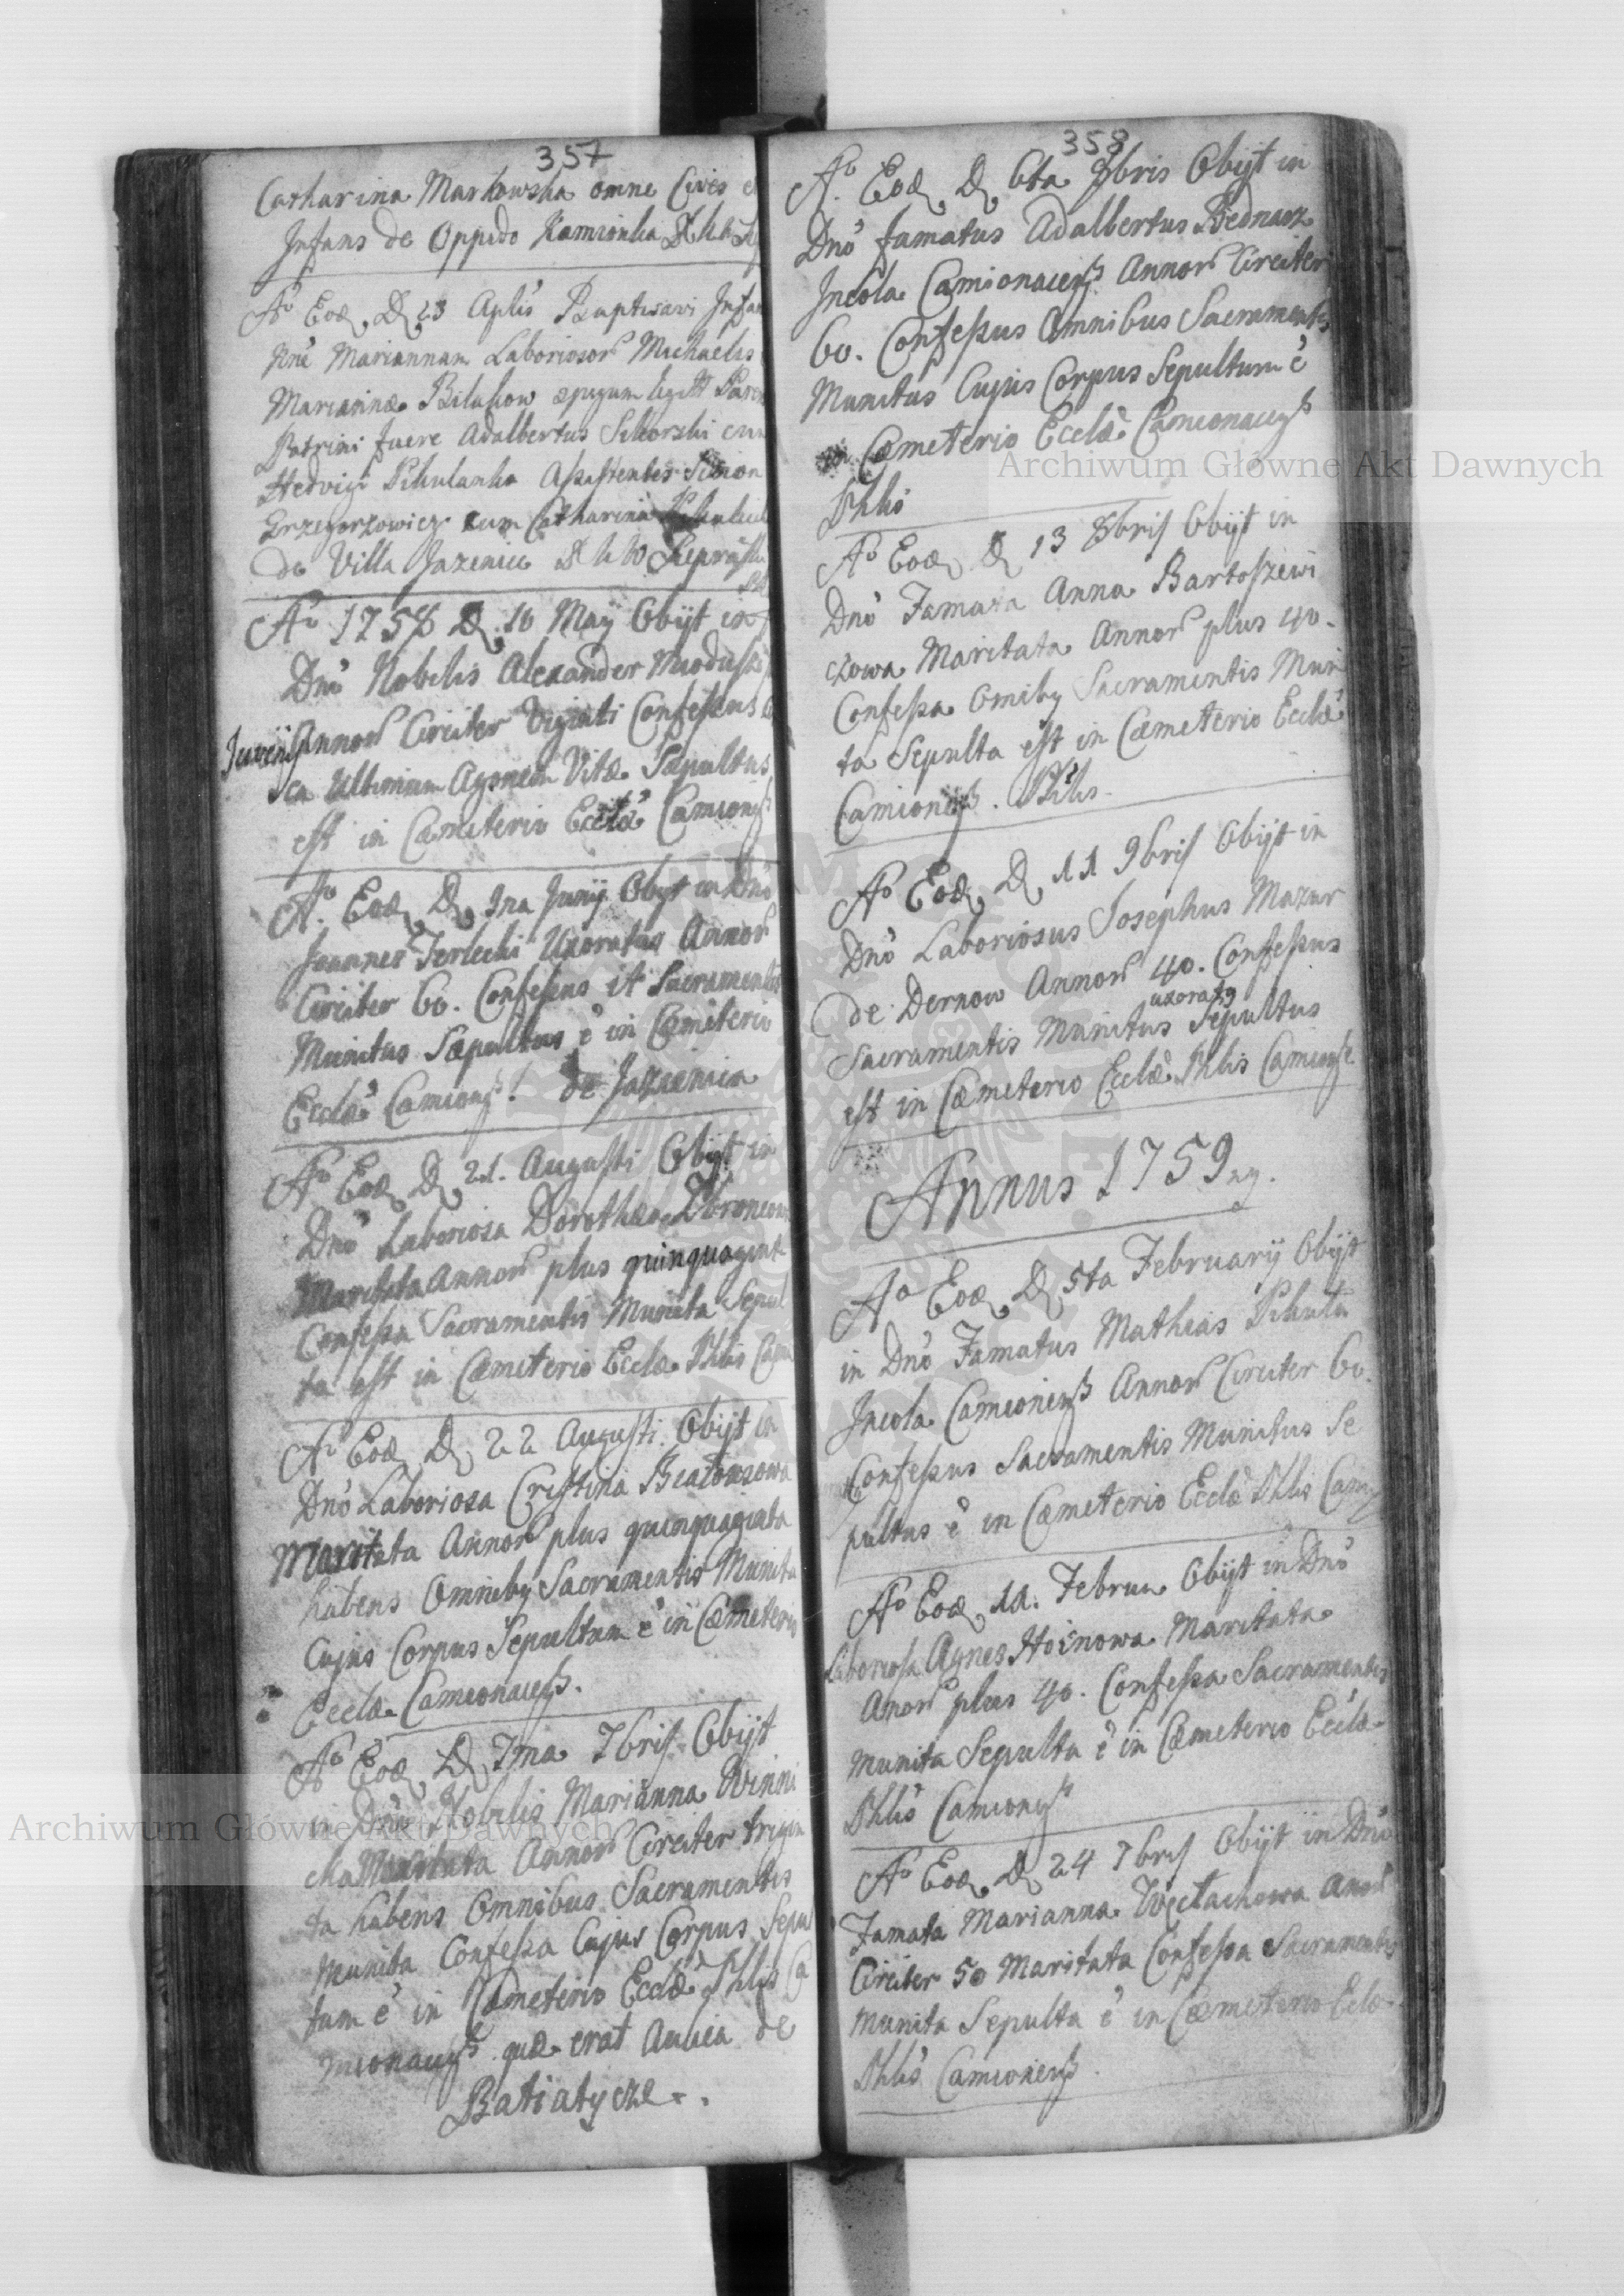 357
Catharina Markowska omne Cives
Infans de Oppido Kamionka
Aō Eod, D, 23 Aplis Baptisavi Infan
Nne Mariannam Laboriosor Michaelis
Marianna legitt Paren
Patrini fuere Adalbertus Sikorski cum
Hedvigi Pikulanka Assistentes Simon
Grzegorzowicz cum Catharina
de Villa Jazenice
Aō 1758 D, 10 Maÿ Obijt in
Dnō Nobilis Alexander Modusk
Juvenis Annor Circiter Viginti Confessus
ca Ultimum Agonem Vitæ Sæpultus
est in Cæmeterio Eccłæ Camionß
Aō Eod, D, Ina Junÿ Obijt in Dnō
Joannes Terlecki Uxoratus Annor
Circiter 60. Confessus et Sacramentis
Munitus Sæpultus ē in Cæmiterio
Ecclæ Camionß. de Jazienica
Aō Eod, D, 21. Augusti Obijt in
Dnō Laboriosa Dorothea
Maritata Annor plus quinquagint
Confessa Sacramentis Munita Sepul
ta est in Cæmeterio Ecclæ Phlis Cami
Aō Eod, D, 22 Augusti Obijt in
Dnō Laboriosa Cristina
Maritata Annor plus quinquaginta
habens Omniby Sacramentis Munita
Cujus Corpus Sepultum ē in Cæmeterio
Ecclæ Camionaceß.
Aō Eod, D, Ima 7bris Obijt
in Dnō Nobilis Marianna Winni
cka Maritata Annor Circiter trigin
ta habens Omnibus Sacramentis
Munita Confessa Cujus Corpus Sepul
tum ē in Cæmeterio Ecclæ Phlis Ca
mionaceß quæ erat Aulica de
Batiatycze.
358
Aō Eod, D, 6ta 8bris Obijt in
Dnō famatus Adalbertus Bednarz
Incola Camionaceß Annor Circiter
60. Confessus Omnibus Sacramentis
Munitus Cujus Corpus Sepultum ē
in Cæmeterio Ecclæ Camionaceß
Phlis
Aō Eod, D, 13 8bris Obijt in
Dnō Famata Anna Bartoszewi
czowa Maritata Annor plus 40.
Confessa Omiby Sacramentis Muni
ta Sepulta est in Cæmeterio Ecclæ
Camionenß. Phlis.
Aō Eod, D, 11 9bris Obijt in
Dnō Laboriosus Josephus Mazur
de Dernow Annor 40. Confessus
uxoraty
Sacramentis Munitus Sepultus
est in Cæmeterio Ecclæ Phlis Camionß
Annus 1759ny.
Aō Eod, D, 5ta Februarÿ Obijt
in Dnō Famatus Mathias Pikula
Incola Camionenß Annor Circiter 60.
Confessus Sacramentis Munitus Se
pultus ē in Cæmeterio Ecclæ Phlis Camio
Aō Eod, 11. Februa Obijt in Dnō
Laboriosa Agnes Hoinowa Maritata
Anor plus 40. Confessa Sacramentis
Munita Sepulta ē in Cæmeterio Ecclæ
Phlis Camionß
Aō Eod, D, 24 7bris Obijt in Dnō
Famata Marianna Anor
Circiter 50 Maritata Confessa Sacramentis
Munita Sepulta ē in Cæmeterio Eclæ
Phlis Camionenß.
Archiwum Główne Akt Dawnych
Archiwum Główne Akt Dawnych